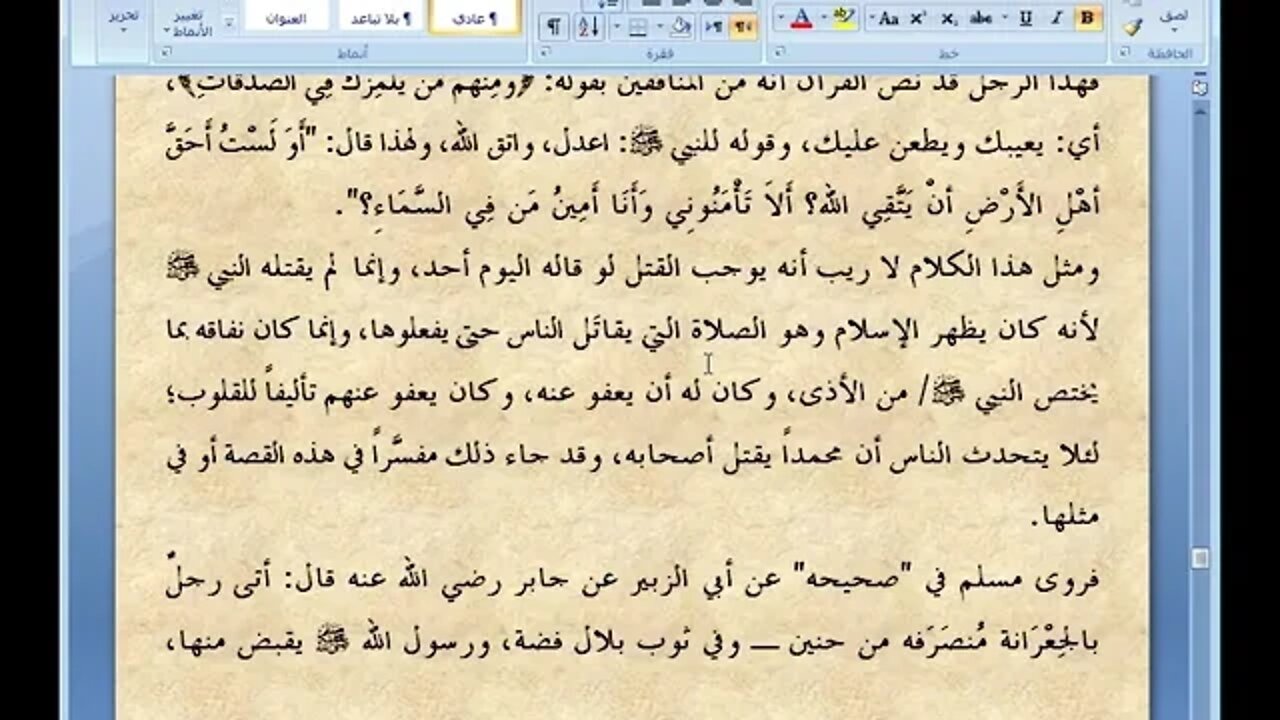 لصق
الحافظة
B I U abe x₂ x² Aa
خط
فقرة
¶ عادي
¶ بلا تباعد
العنوان
تغيير الأنماط
أنماط
تحرير
فهذا الرجل قد نص القرآن أنه من المنافقين بقوله: ﴿ومنهم من يلمزك في الصدقاتِ﴾،
أي: يعيبك ويطعن عليك، وقوله للنبي ﷺ: اعدل، واتق الله، ولهذا قال: "أَوَ لَسْتُ أَحَقَّ
أهْلِ الأَرْضِ أنْ يَتَّقِي الله؟ أَلاَ تَأْمَنُونِي وَأَنَا أَمِينُ مَن فِي السَّمَاءِ؟".
ومثل هذا الكلام لا ريب أنه يوجب القتل لو قاله اليوم أحد، وإنما لم يقتله النبي ﷺ
لأنه كان يظهر الإسلام وهو الصلاة التي يقاتَل الناس حتى يفعلوها، وإنما كان نفاقه بما
يختص النبي ﷺ/ من الأذى، وكان له أن يعفو عنه، وكان يعفو عنهم تأليفاً للقلوب؛
لئلا يتحدث الناس أن محمداً يقتل أصحابه، وقد جاء ذلك مفسَّراً في هذه القصة أو في
مثلها.
فروى مسلم في "صحيحه" عن أبي الزبير عن جابر رضي الله عنه قال: أتى رجلٌ
بالجِعْرَانة مُنصَرَفه من حنين ــ وفي ثوب بلال فضة، ورسول الله ﷺ يقبض منها،